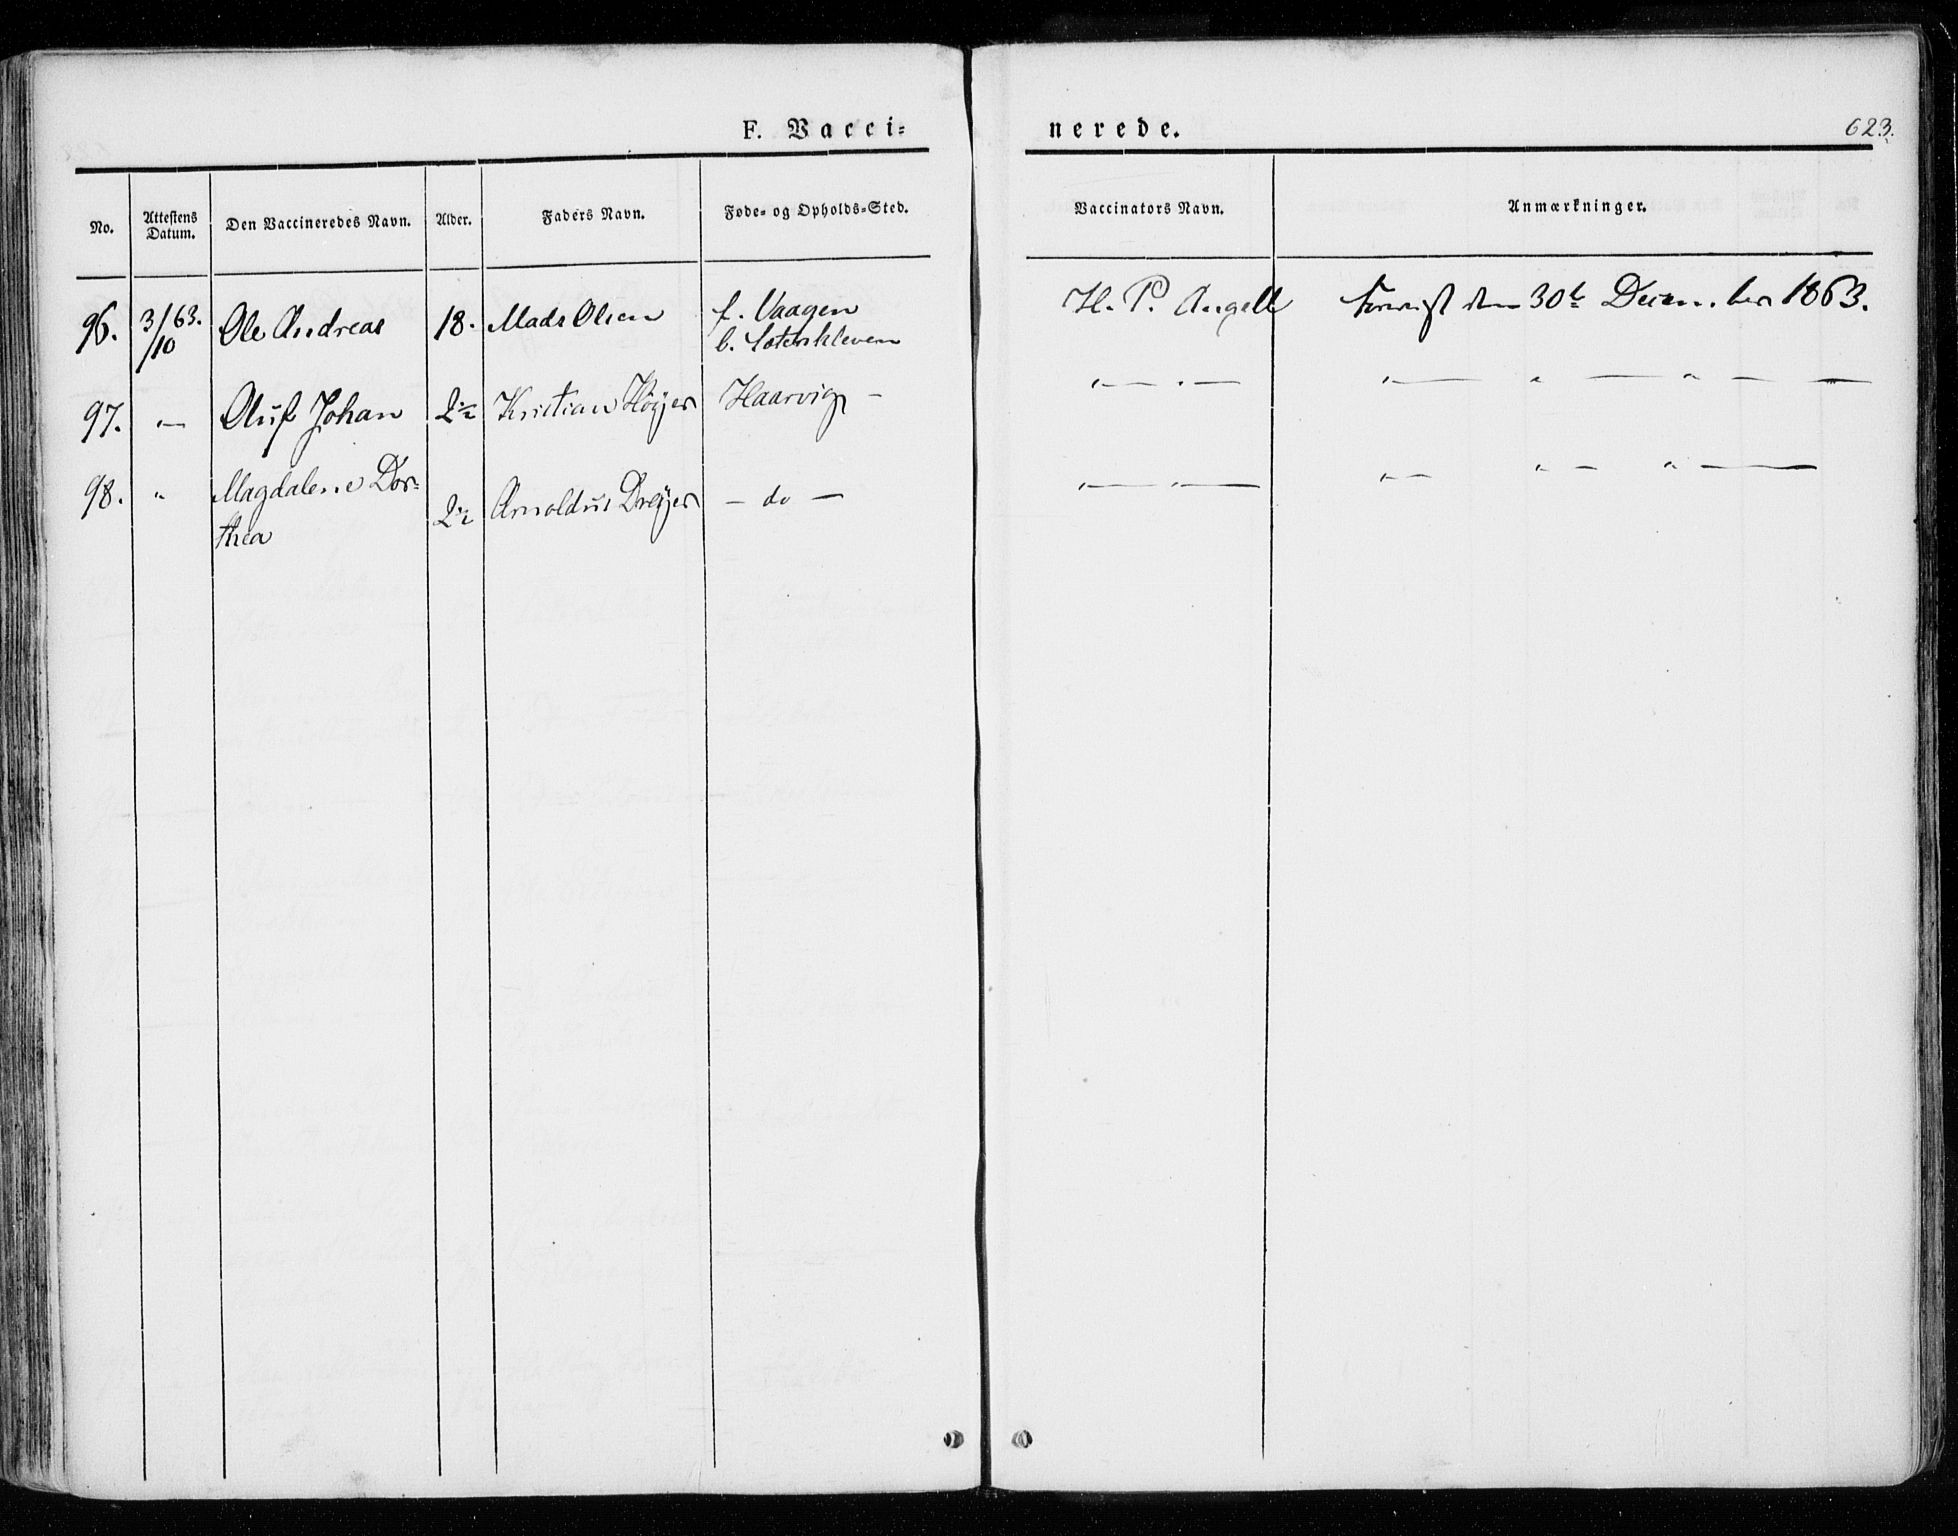 F. Vacci-
nerede.
623.
No.
Attestens Datum.
Den Vaccineredes Navn.
Alder.
Faders Navn.
Føde- og Opholds-Sted.
Vaccinators Navn.
Anmærkninger.
96. 3/63. /10 Ole Andreas 18. Mads Olsen f. Vaagen H. P. Angell den 30te December 1863.
b.
97. — Oluf Johan 2½ Kristian Höyer Haarvig — „ — „ — „ — „ — „ — —
98. „ Magdalene Dor-
thea 2½ Arnoldus Dreyer — do — „ — „ — „ — „ — „ —